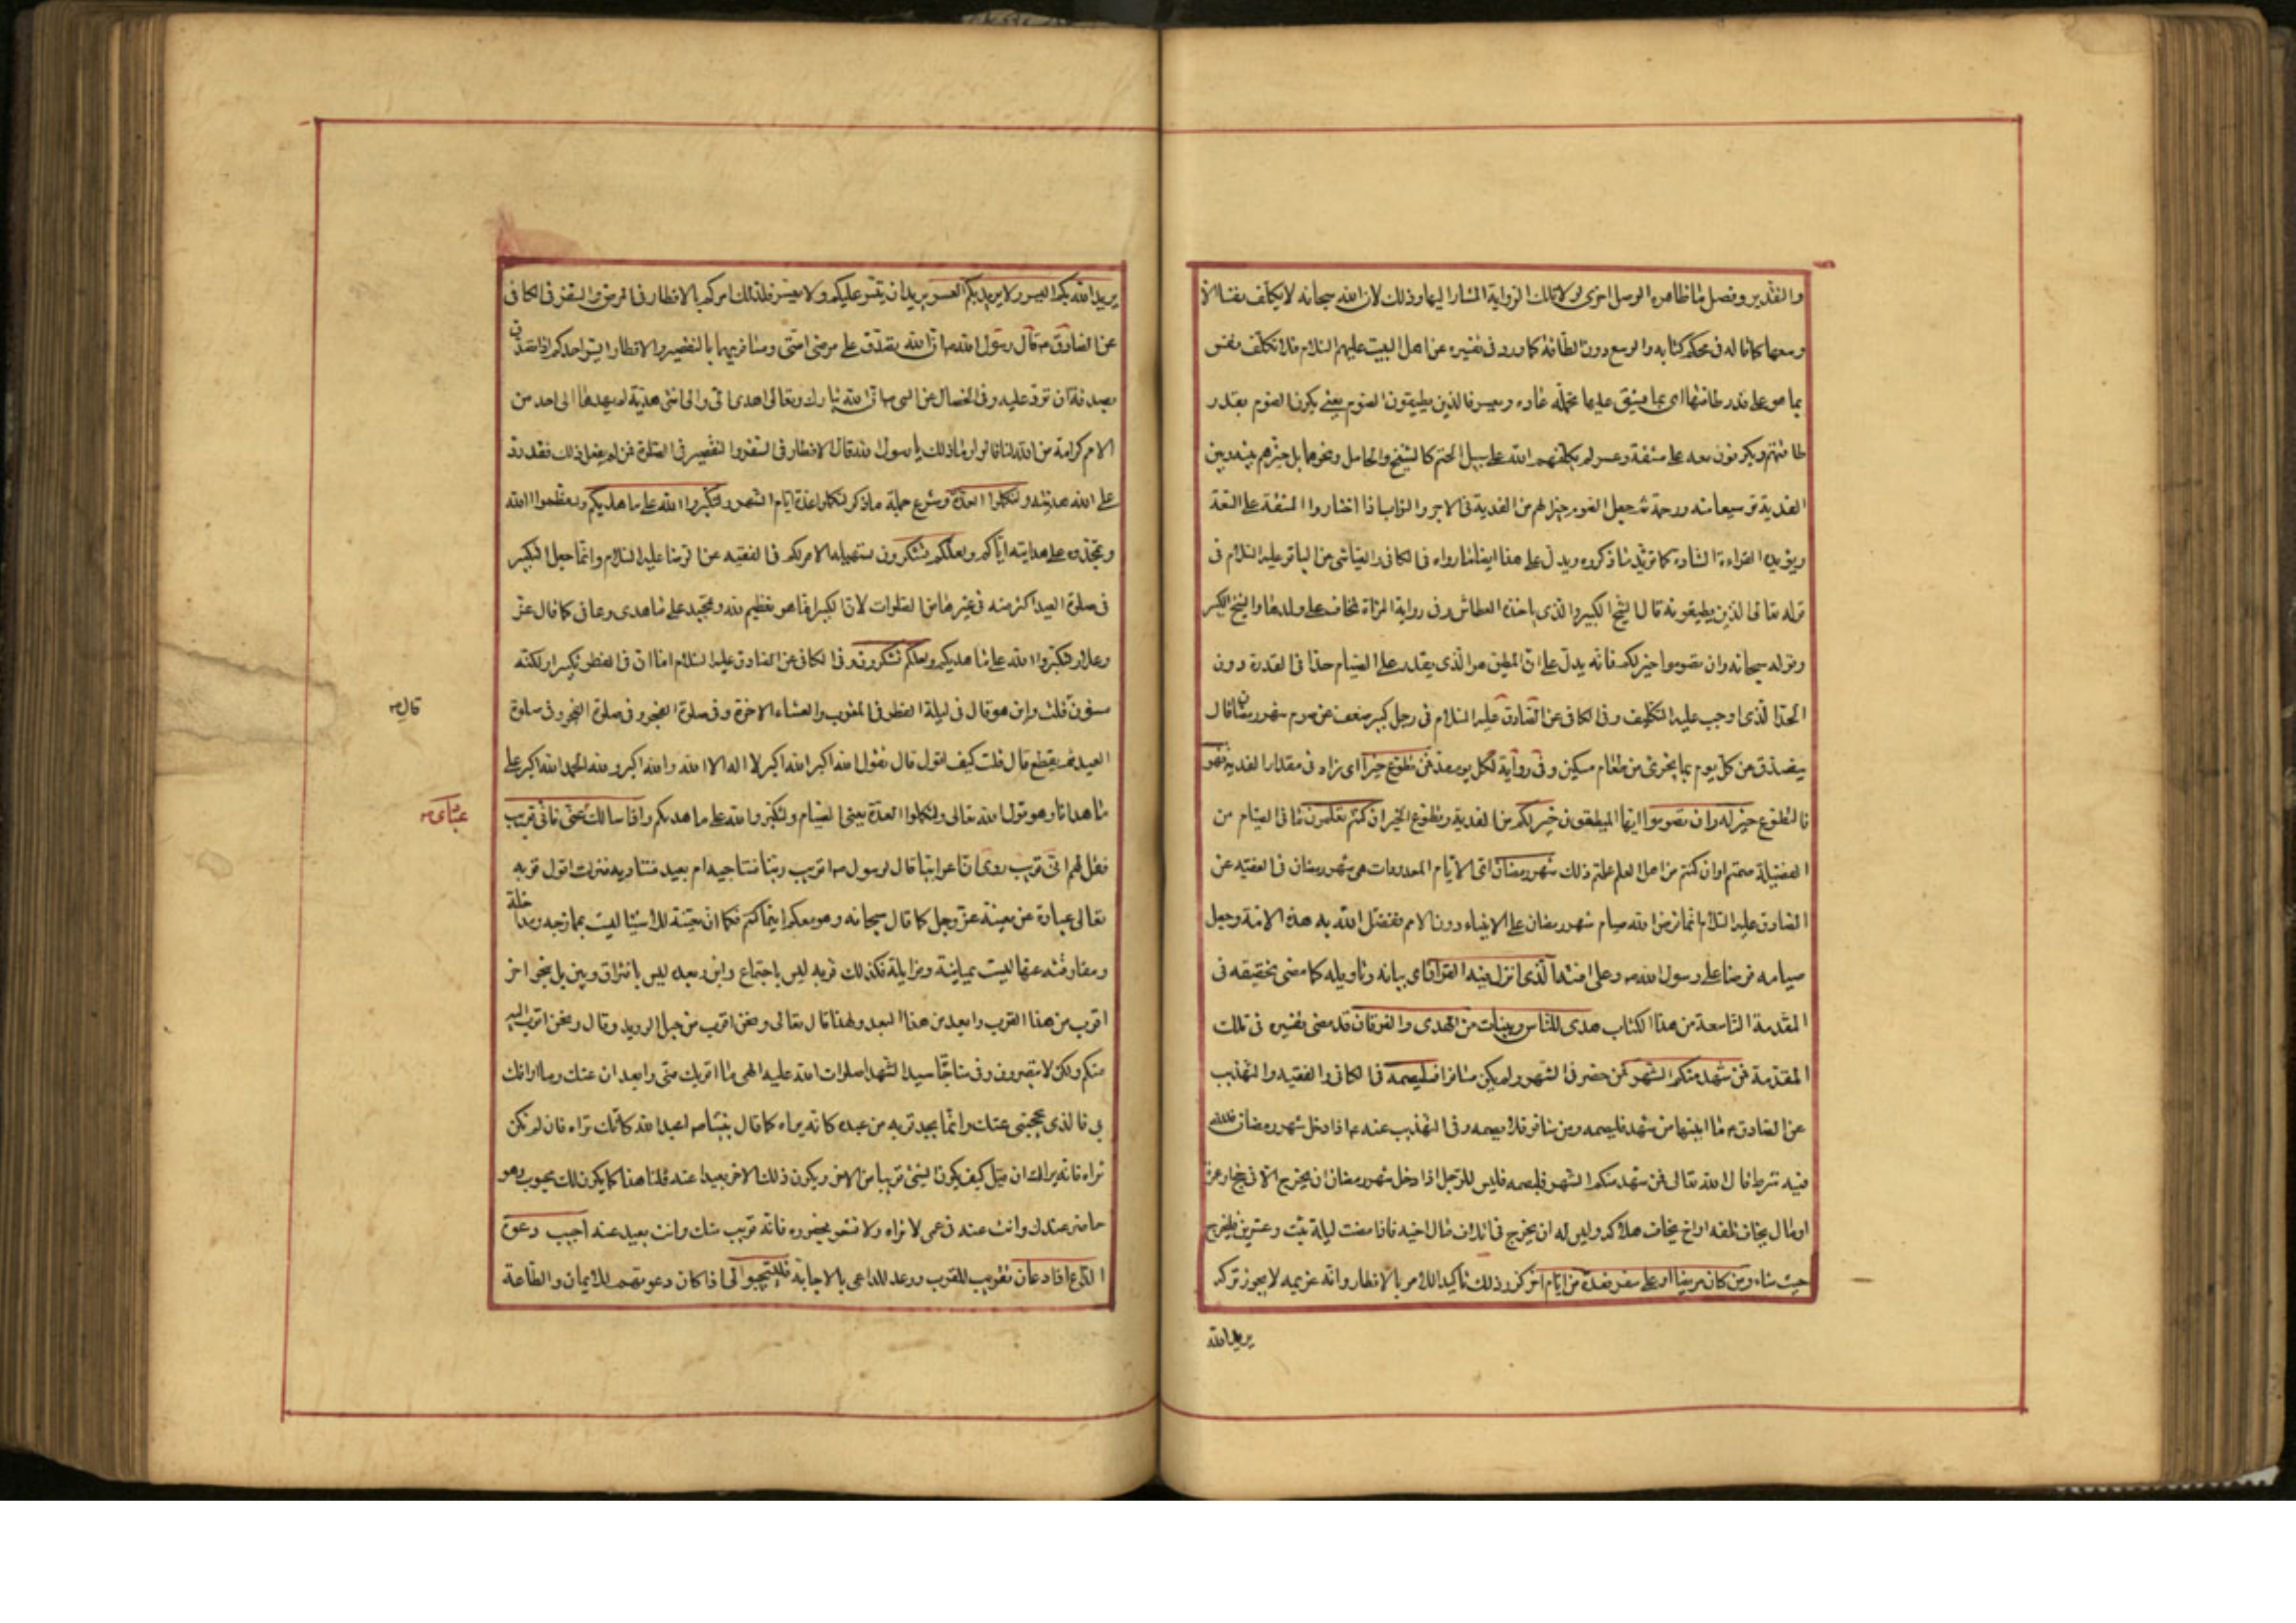 والتقدير وفصل ما ظاهره الوصل اخرى لولا تلك الرواية المشار اليها وذلك لان الله سبحانه لا يكلف نفسا الا
وسعها كما قاله فى محكم كتابه والوسع دون الطاقة كما ورد فى تفسيره عن اهل البيت عليهم السلام فلا تكلف نفس
بما هو على قدر طاقتها اى بما يشق عليها تحمله عادة وبعسر فالذين يطيقون الصوم يعنى يكون الصوم بقدر
طاقتهم ويكونون معه على مشقة وعسر لم يكلفهم الله على سبيل الحتم كالشيخ والحامل ونحوهما بل خيرهم بينه وبين
الفدية توسيعا منه ورحمة ثم جعل الصوم خيرا لهم من الفدية فى الاجر والثواب اذا اختاروا المشقة على السعة
ويؤيده القراءة الشاذة كما تؤيد ما ذكروه ويدل على هذا ايضا ما رواه فى الكافى والعياشى عن الباقر عليه السلام فى
قوله تعالى الذين يطيقونه قال الشيخ الكبير والذى ياخذه العطاش وفى رواية المرأة تخاف على ولدها والشيخ الكبير
وقوله سبحانه وان تصوموا خير لكم فانه يدل على ان المطيق هو الذى يقدر على الصيام حدا فى القدرة دون
الحد الذى اوجب عليه التكليف وفى الكافى عن الصادق عليه السلام فى رجل كبير ضعف عن صوم شهر رمضان قال
يتصدق عن كل يوم بما يجزى من طعام مسكين وفى رواية لكل يوم مد فمن تطوع خيرا اى زاد فى مقدار الفدية فهو
فالتطوع خير له وان تصوموا ايها المطيقون خير لكم من الفدية وتطوع الخير ان كنتم تعلمون ما فى الصيام من
الفضيلة صمتم او ان كنتم من اهل العلم علمتم ذلك شهر رمضان اى الايام المعدودات هى شهر رمضان فى الفقيه عن
الصادق عليه السلام انما فرض الله صيام شهر رمضان على الانبياء دون الامم ففضل الله به هذه الامة وجعل
صيامه فرضا على رسول الله ص وعلى امته الذى انزل فيه القرآن اى بيانه وتاويله كما مضى تحقيقه فى
المقدمة التاسعة من هذا الكتاب هدى للناس وبينات من الهدى والفرقان قد مضى تفسيره فى تلك
المقدمة فمن شهد منكم الشهر فمن حضر فى الشهر ولم يكن مسافرا فليصمه فى الكافى والفقيه والتهذيب
عن الصادق ع ما ابينها من شهد فليصمه ومن سافر فلا يصمه وفى التهذيب عنه ع اذا دخل شهر رمضان فلله
فيه شرط قال الله تعالى فمن شهد منكم الشهر فليصمه فليس للرجل اذا دخل شهر رمضان ان يخرج الا فى حج او عمرة
او مال يخاف تلفه او اخ يخاف هلاكه وليس له ان يخرج فى اتلاف مال اخيه فاذا مضت ليلة ثلث وعشرين فليخرج
حيث شاء ومن كان مريضا او على سفر فعدة من ايام اخر كرر ذلك تاكيدا للامر بالافطار وانه عزيمة لا يجوز تركه
يريد الله
يريد الله بكم اليسر ولا يريد بكم العسر يريد ان ييسر عليكم ولا يعسر فلذلك امركم بالافطار فى المرض والسفر فى الكافى
عن الصادق ع قال رسول الله ص ان الله تصدق على مرضى امتى ومسافريها بالتقصير والافطار ايسر احدكم اذا تصدق
بصدقة ان ترد عليه وفى الخصال عن النبى ص ان الله تبارك وتعالى اهدى الى والى امتى هدية لم يهدها الى احد من
الامم كرامة من الله لنا قالوا وما ذلك يا رسول الله قال الافطار فى السفر والتقصير فى الصلوة فمن لم يفعل ذلك فقد رد
على الله هديته ولتكملوا العدة وشرع جملة ما ذكر لتكملوا عدة ايام الشهر ولتكبروا الله على ما هديكم ولتعظموا الله
وتمجدوه على هدايته اياكم ولعلكم تشكرون تسهيله الامر لكم فى الفقيه عن الرضا عليه السلام وانما جعل التكبير
فى صلوة العيد اكثر منه فى غيرها من الصلوات لان التكبير انما هو تعظيم لله وتمجيد على ما هدى وعافى كما قال عز
وعلا ولتكبروا الله على ما هديكم ولعلكم تشكرون وفى الكافى عن الصادق عليه السلام اما ان فى الفطر تكبيرا ولكنه
مسنون قلت واين هو قال فى ليلة الفطر فى المغرب والعشاء الاخرة وفى صلوة الفجر وفى صلوة
العيد ثم يقطع قال قلت كيف اقول قال تقول الله اكبر الله اكبر لا اله الا الله والله اكبر ولله الحمد الله اكبر على
ما هدانا وهو قول الله تعالى ولتكملوا العدة يعنى الصيام ولتكبروا الله على ما هديكم واذا سالك عنى فانى قريب
فقل لهم انى قريب روى ان اعرابيا قال لرسول ص اقريب ربنا فنناجيه ام بعيد فنناديه فنزلت اقول قربه
تعالى عبارة عن معيته عز وجل كما قال سبحانه وهو معكم اينما كنتم فكما ان معيته للاشيا ليست بممازجة ومداخلة
ومفارقته عنها ليست بمباينة ومزايلة فكذلك قربه ليس باجتماع واين وبعده ليس بافتراق وبين بل بنحو اخر
اقرب من هذا القرب وابعد من هذا البعد ولهذا قال تعالى ونحن اقرب من حبل الوريد وقال ونحن اقرب اليه
منكم ولكن لا تبصرون وفى مناجاة سيد الشهدا صلوات الله عليه الهى ما اقربك منى وابعدنى عنك وما ارافك
بى فما الذى يحجبنى عنك وانما يجد قربه من عبده كانه يراه كما قال نبينا ص اعبد الله كانك تراه فان لم تكن
تراه فانه يراك ان قيل كيف يكون الشئ قريبا من الاخر ويكون ذلك الاخر بعيدا عنه قلنا هذا كما يكون لك محبوب وهو
حاضر عندك وانت عنه فى عمى لا تراه ولا تشعر بحضوره فانه قريب منك وانت بعيد عنه اجيب دعوة
الداع اذا دعان تقريب للقرب ووعد للداعى بالاجابة فليستجيبوا لى اذا كان دعوتهم للايمان والطاعة
قال ص
عبادى ص